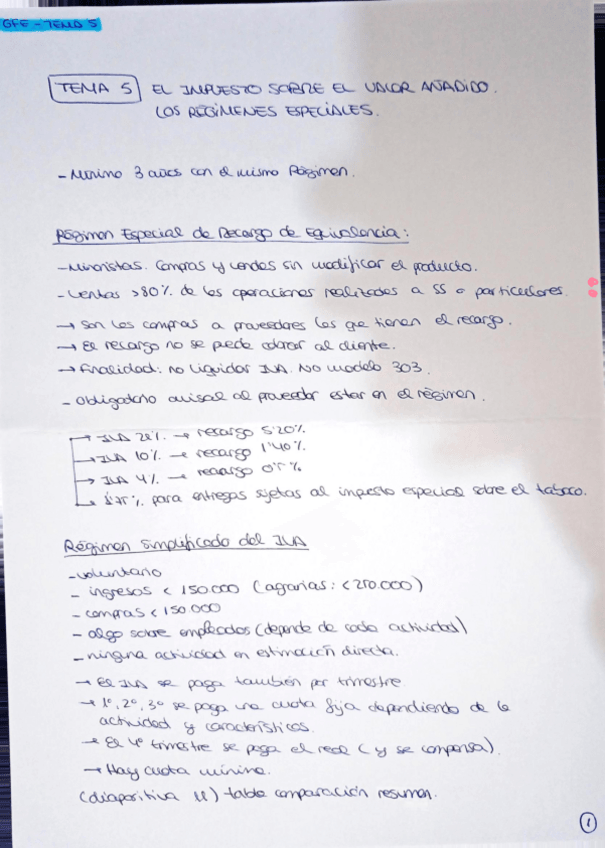 GFE - TEMA 5
TEMA 5 EL IMPUESTO SOBRE EL VALOR AÑADIDO.
LOS RÉGIMENES ESPECIALES.
- Mínimo 3 años con el mismo Régimen.
Régimen Especial de Recargo de Equivalencia:
- Minoristas. Compras y vendes sin modificar el producto.
- Ventas >80% de las operaciones realizadas a SS o particulares.
→ Son las compras a proveedores las que tienen el recargo.
→ El recargo no se puede cobrar al cliente.
→ Finalidad: no liquidar IVA. No modelo 303.
- Obligatorio avisar al proveedor estar en el régimen.
→ IVA 21% → recargo 5'20%
→ IVA 10% → recargo 1'40%
→ IVA 4% → recargo 0'5%
→ 1'75% para entregas sujetas al impuesto especial sobre el tabaco.
Régimen Simplificado del IVA
- voluntario
- ingresos < 150.000 (agrarias: < 250.000)
- compras < 150.000
- algo sobre empleados (depende de cada actividad)
- ninguna actividad en estimación directa.
→ El IVA se paga también por trimestre.
→ 1º, 2º, 3º se paga una cuota fija dependiendo de la
actividad y características.
→ El 4º trimestre se paga el real (y se compensa).
→ Hay cuota mínima.
(diapositiva 11) tabla comparación resumen.
1